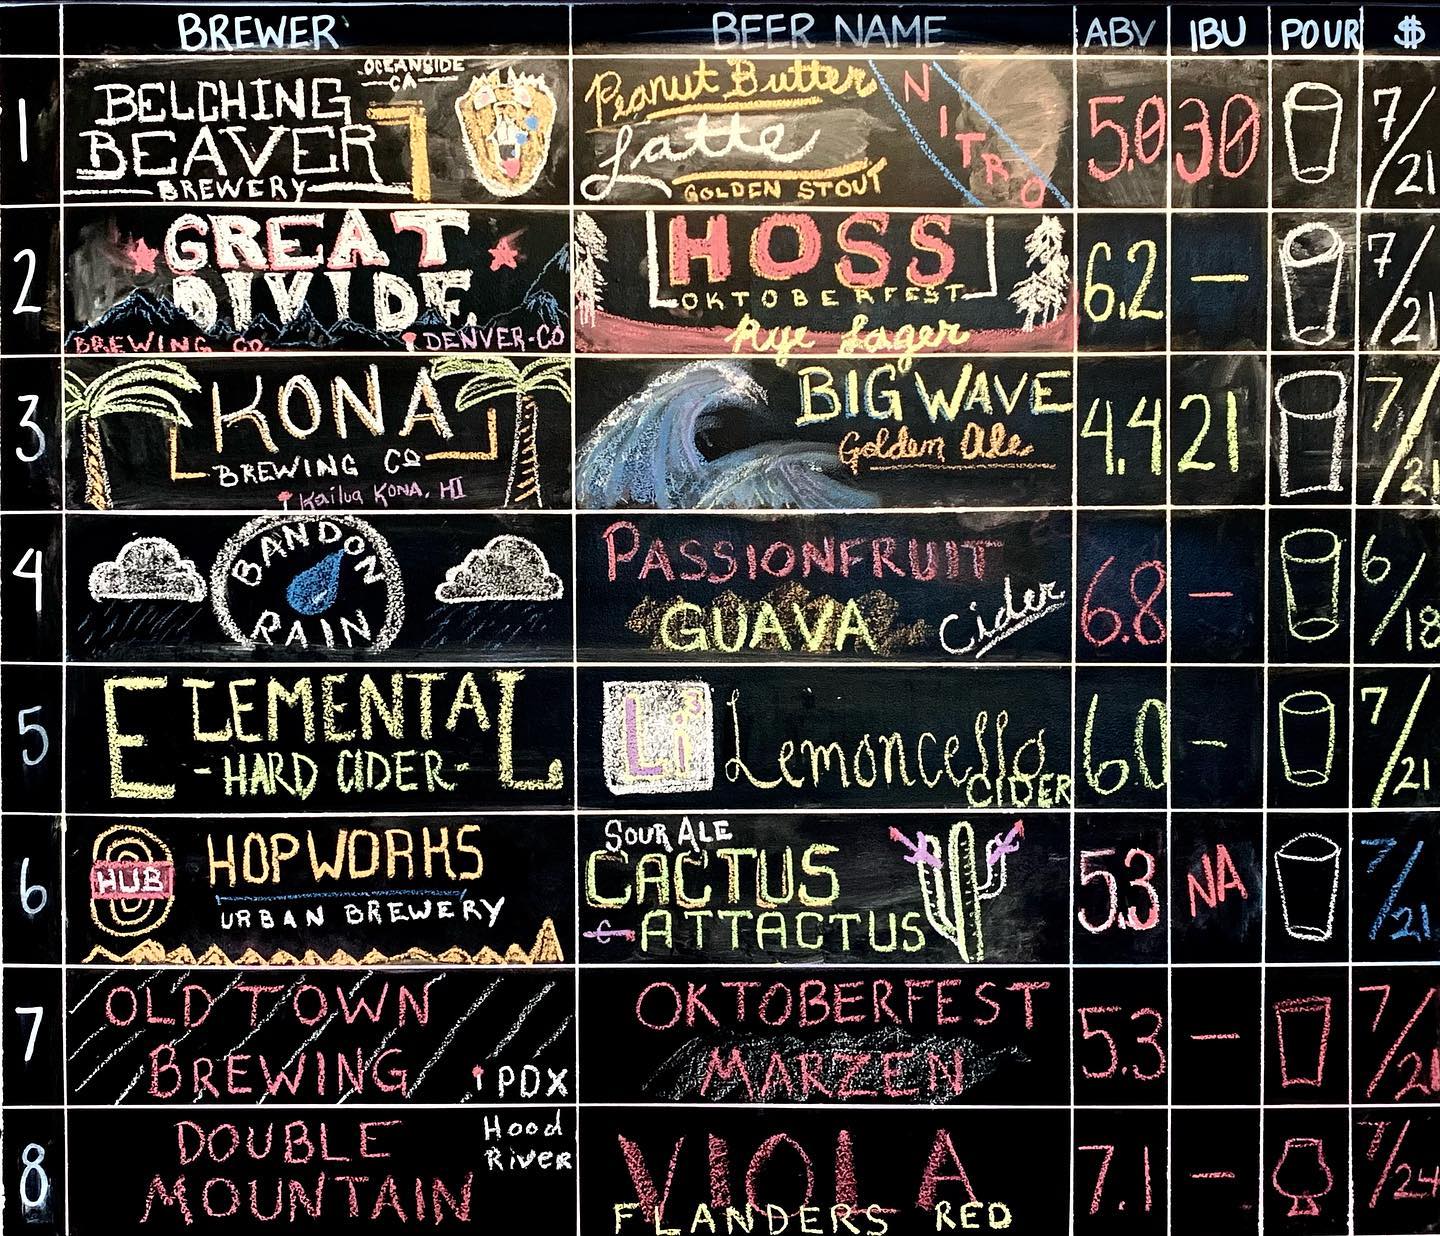 BREWER BEER NAME ABV IBU POUR $
1 BELCHING BEAVER BREWERY OCEANSIDE CA Peanut Butter Latte GOLDEN STOUT NITRO 5.0 30 7/21
2 GREAT DIVIDE BREWING CO. DENVER-CO HOSS OKTOBERFEST Rye Lager 6.2 — 7/21
3 KONA BREWING CO Kailua KONA, HI BIG WAVE Golden Ale 4.4 21 7/21
4 BANDON RAIN PASSIONFRUIT GUAVA Cider 6.8 — 6/18
5 ELEMENTAL -HARD CIDER- Li 3 Lemoncello CIDER 6.0 — 7/21
6 HUB HOPWORKS URBAN BREWERY SOUR ALE CACTUS ATTACTUS 5.3 NA 7/21
7 OLD TOWN BREWING PDX OKTOBERFEST MARZEN 5.3 — 7/21
8 DOUBLE MOUNTAIN Hood River VIOLA FLANDERS RED 7.1 — 7/24